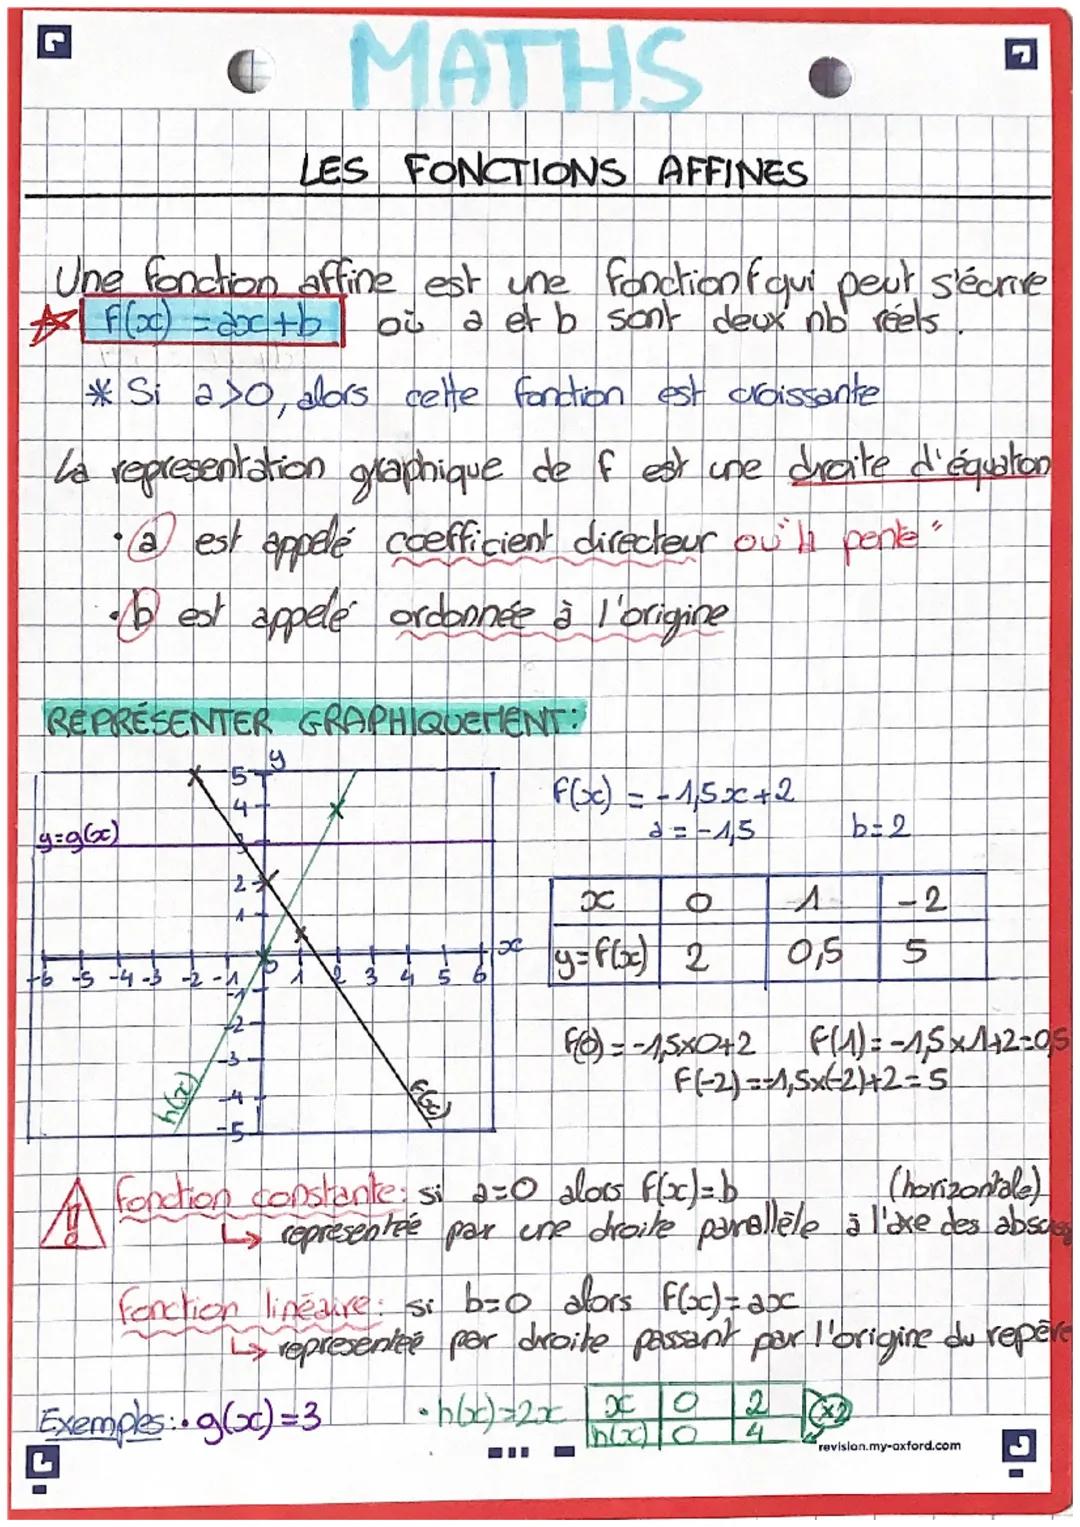 MATHS
LES FONCTIONS AFFINES
Une fonction affine est une fonction f qui peut s'écrire
f(x) = ax+b où a et b sont deux nb réels.
* Si a>0, alors cette fonction est croissante
La representation graphique de f est une droite d'équation
• a est appelé coefficient directeur ou "la pente"
• b est appelé ordonnée à l'origine
REPRÉSENTER GRAPHIQUEMENT:
y
5
4
3
2
1
y=g(x)
x
-6 -5 -4 -3 -2 -1 0 1 2 3 4 5 6
-1
-2
-3
-4
-5
h(x)
f(x)
f(x) = -1,5x+2
a = -1,5 b=2
x 0 1 -2
y=f(x) 2 0,5 5
f(0) = -1,5x0+2 f(1) = -1,5x1+2=0,5
f(-2) = -1,5x(-2)+2=5
!
fonction constante: si a=0 alors f(x)=b (horizontale)
↳ représentée par une droite parallèle à l'axe des
fonction linéaire: si b=0 alors f(x)=ax
↳ representée par droite passant par l'origine du repère
Exemples: • g(x)=3 • h(x)=2x
x 0 2
h(x) 0 4
x2
revision.my-oxford.com